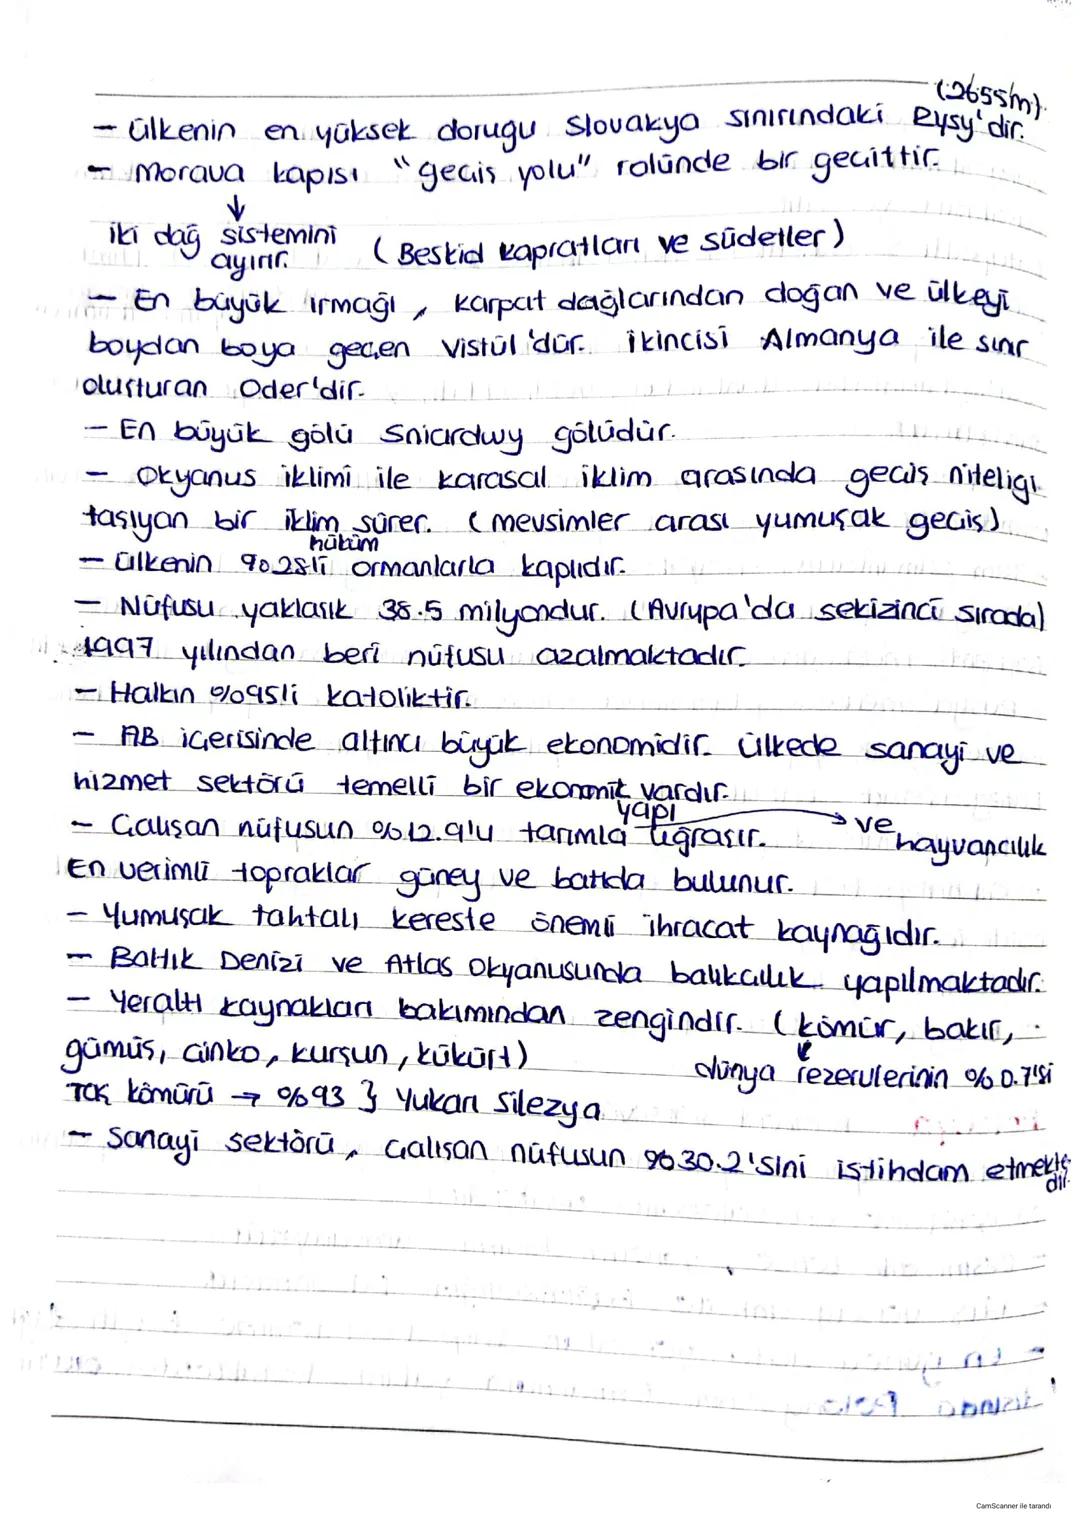 (2655m).
- Ülkenin en yüksek doruğu Slovakya sınırındaki Rysy'dir.
- Morava kapısı "geçiş yolu" rolünde bir geçittir.
↓
iki dağ sistemini ayırır. (Beskid kapratları ve Südetler)
- En büyük ırmağı, Karpat dağlarından doğan ve ülkeyi
boydan boya geçen Vistül'dür. İkincisi Almanya ile sınır
oluşturan Oder'dir.
- En büyük gölü Sniardwy gölüdür.
- Okyanus iklimi ile karasal iklim arasında geçiş niteliği
taşıyan bir iklim sürer. (mevsimler arası yumuşak geçiş)
hüküm
- Ülkenin %28'li ormanlarla kaplıdır.
- Nüfusu yaklaşık 38.5 milyondur. (Avrupa'da sekizinci sırada)
1997 yılından beri nüfusu azalmaktadır.
- Halkın %95'i katoliktir.
- AB içerisinde altıncı büyük ekonomidir. Ülkede sanayi ve
hizmet sektörü temelli bir ekonomik vardır.
yapı
- Çalışan nüfusun %12.9'u tarımla uğraşır. → ve hayvancılık
En verimli topraklar güney ve batıda bulunur.
- Yumuşak tahtalı kereste önemli ihracat kaynağıdır.
- Baltık Denizi ve Atlas Okyanusunda balıkçılık yapılmaktadır.
- Yeraltı kaynakları bakımından zengindir. (kömür, bakır,
gümüş, çinko, kurşun, kükürt) dünya rezervlerinin %0.7'si
Taş kömürü → %93 } Yukarı Silezya
- Sanayi sektörü, çalışan nüfusun %30.2'sini istihdam etmekte
dir.
CamScanner ile tarandı